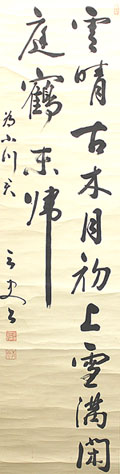 雲晴古木月初上雪満閑
庭鶴未帰
為小川君